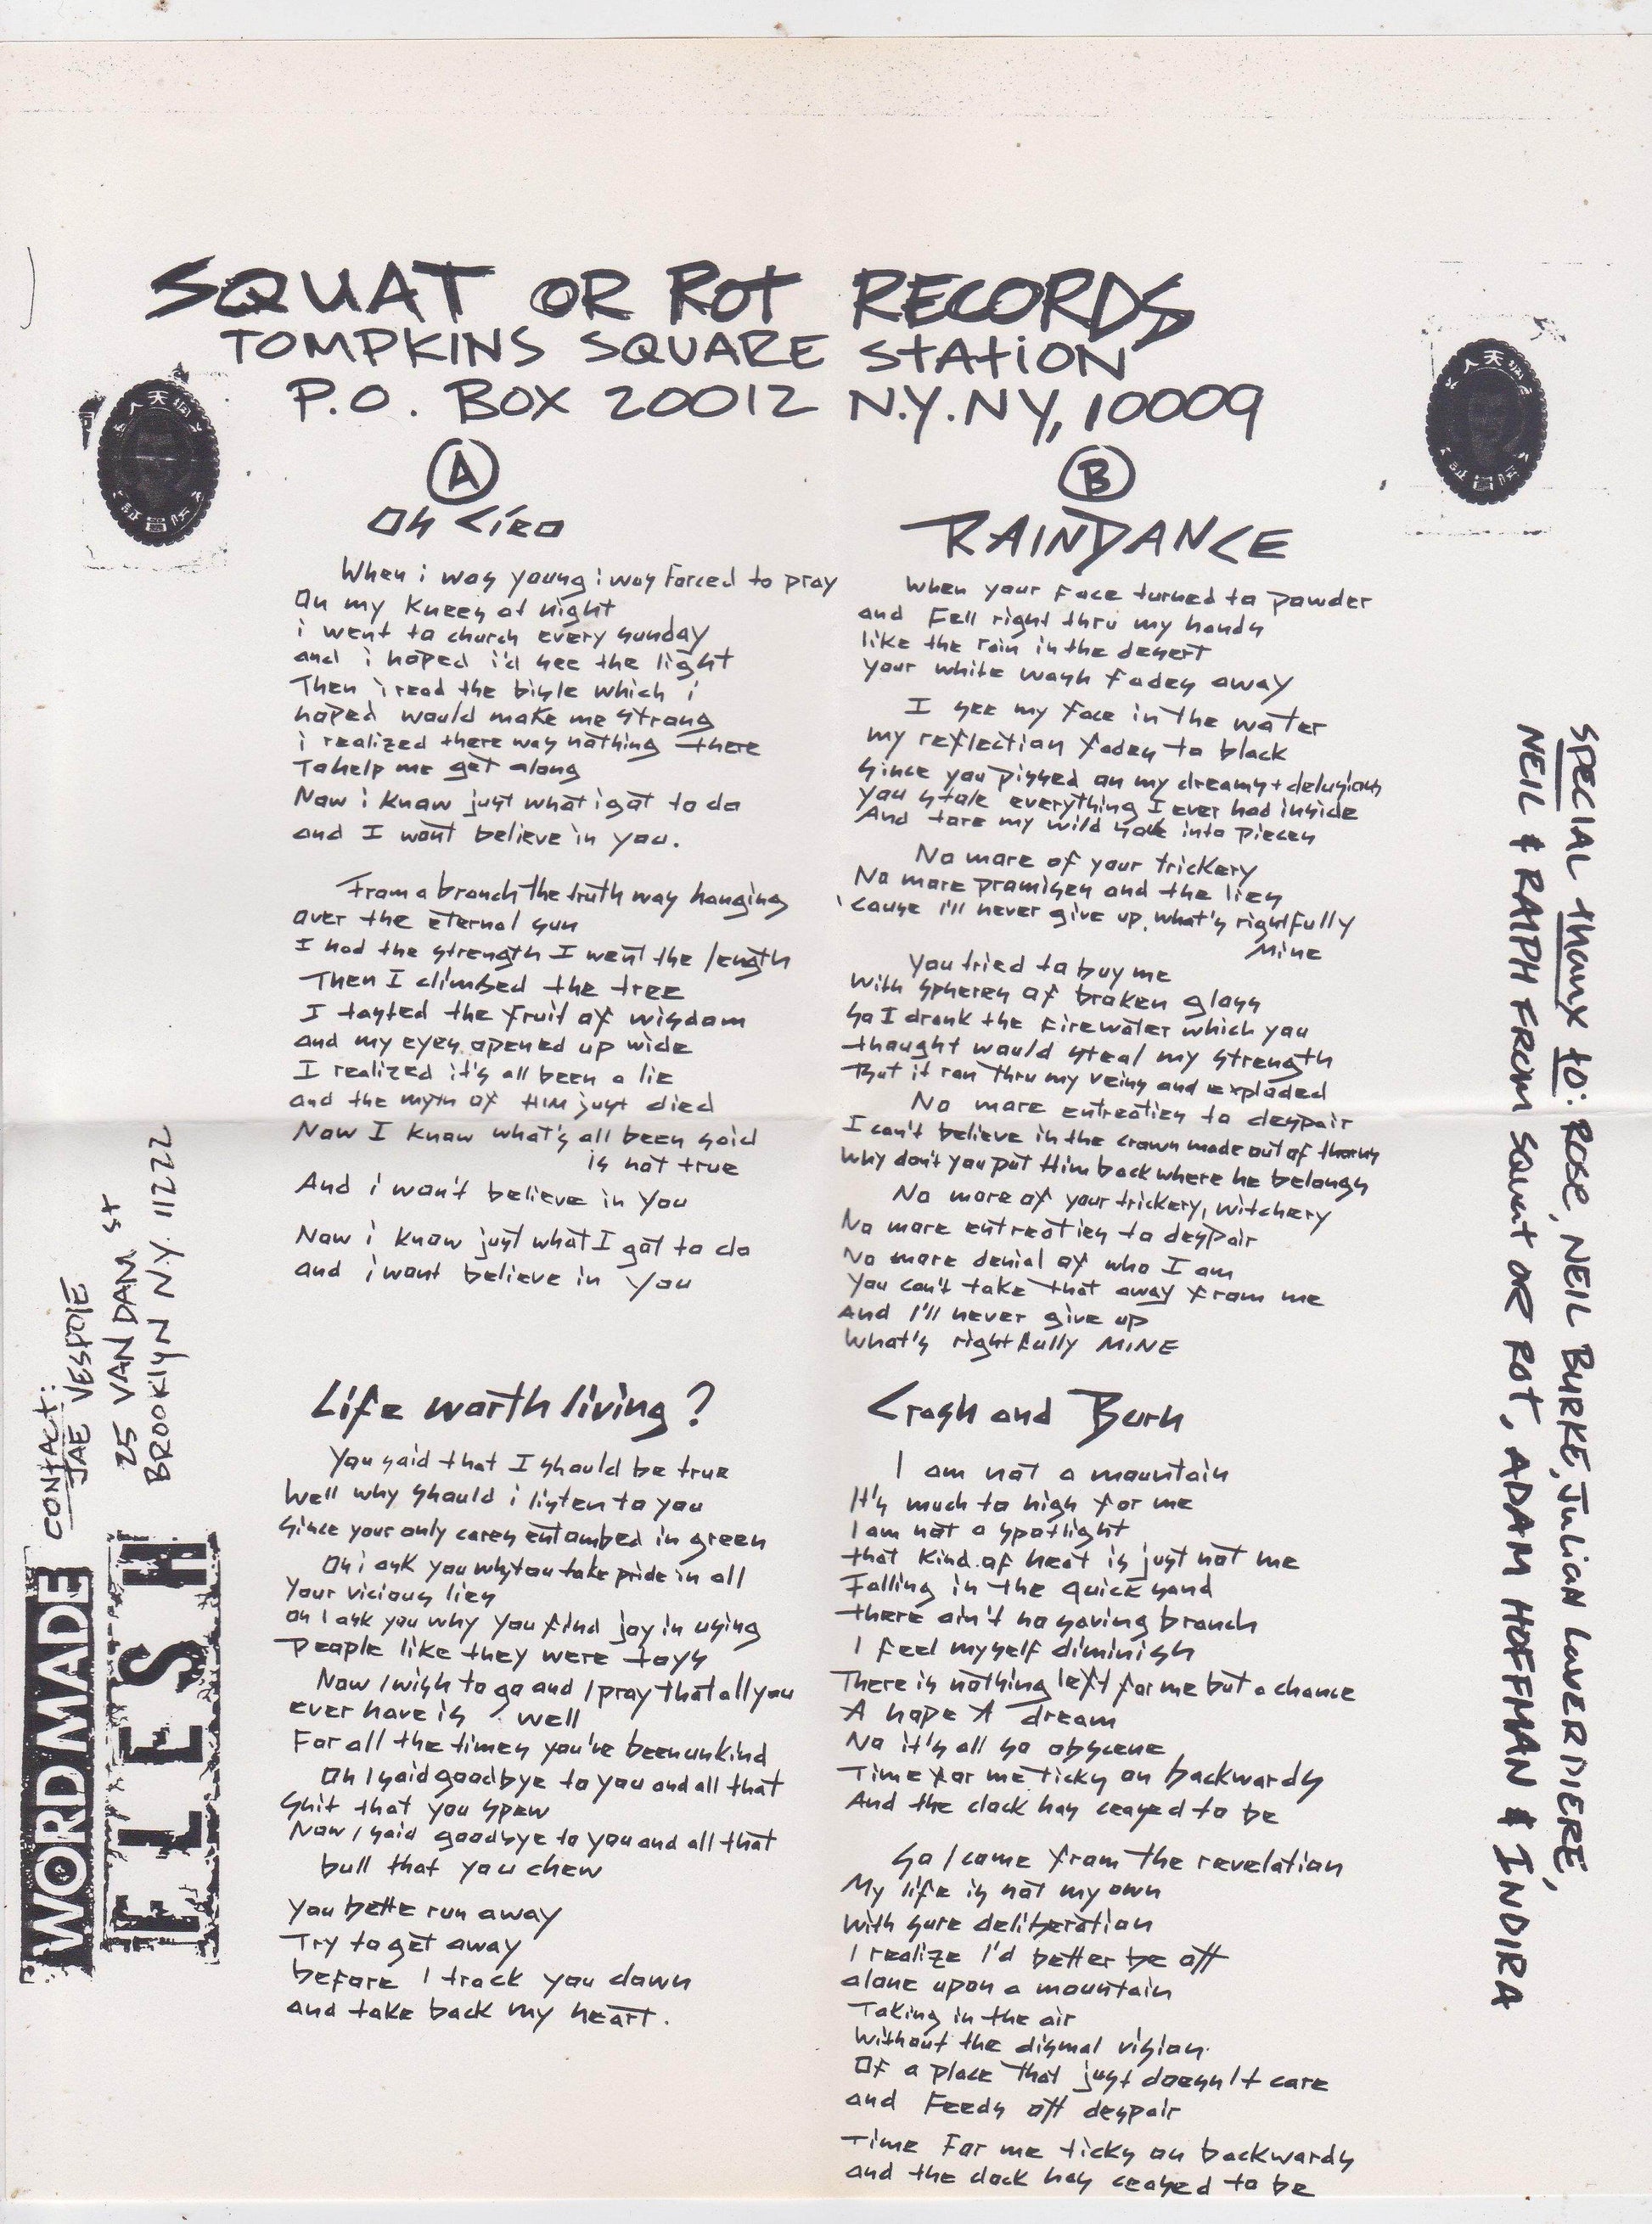 SQUAT OR ROT RECORDS
TOMPKINS SQUARE STATION
P.O. BOX 20012 N.Y. NY, 10009
A
Oh Cieo
When i was young i was forced to pray
On my knees at night
i went to church every sunday
and i hoped i'd see the light
Then i read the bible which i
hoped would make me strong
i realized there was nothing there
To help me get along
Now i know just what i got to do
and I wont believe in you.
From a branch the truth was hanging
over the eternal sun
I had the strength I went the length
Then I climbed the tree
I tasted the fruit of wisdom
and my eyes opened up wide
I realized it's all been a lie
and the myth of HIM just died
Now I know what's all been said
is not true
And i won't believe in you
Now i know just what I got to do
and i wont believe in you
Life worth living?
You said that I should be true
Well why should i listen to you
Since your only cares entombed in green
Oh i ask you why you take pride in all
Your vicious lies
Oh I ask you why you find joy in using
People like they were toys
Now I wish to go and I pray that all you
ever have is well
For all the times you've been unkind
Oh I said goodbye to you and all that
Shit that you spew
Now I said goodbye to you and all that
bull that you chew
You bette run away
Try to get away
before I track you down
and take back my heart.
B
RAINDANCE
When your face turned to powder
and Fell right thru my hands
like the rain in the desert
your white wash fades away
I see my face in the water
my reflection fades to black
Since you pissed on my dreams + delusions
you stole everything I ever had inside
And tore my wild into pieces
No more of your trickery
No more promises and the lies
'cause I'll never give up what's rightfully
Mine
You tried to buy me
With spheres of broken glass
So I drank the firewater which you
thought would steal my strength
But it ran thru my veins and exploded
No more entreaties to despair
I can't believe in the crown made out of thorns
Why don't you put Him back where he belongs
No more of your trickery, witchery
No more entreaties to despair
No more denial of who I am
You can't take that away from me
And I'll never give up
What's rightfully MINE
Crash and Burn
I am not a mountain
It's much to high for me
I am not a spotlight
that kind of heat is just not me
Falling in the quicksand
there ain't no saving branch
I feel myself diminish
There is nothing left for me but a chance
A hope A dream
No it's all so obscene
Time for me ticks on backwards
And the clock has ceased to be
So I come from the revelation
My life is not my own
With sure deliberation
I realize I'd better be off
alone upon a mountain
Taking in the air
Without the dismal vision
Of a place that just doesn't care
and Feeds off despair
Time For me ticks on backwards
and the clock has ceased to be
WORD MADE
FLESH
CONTACT:
JAE VESPOIE
25 VAN DAM St
BROOKlyN N.Y. 11222
SPECIAL thanx to: ROSE, NEIL BURKE, Julian LAVERDIERE,
NEIL & RALPH FROM SQUAT OR ROT, ADAM HOFFMAN & INDIRA